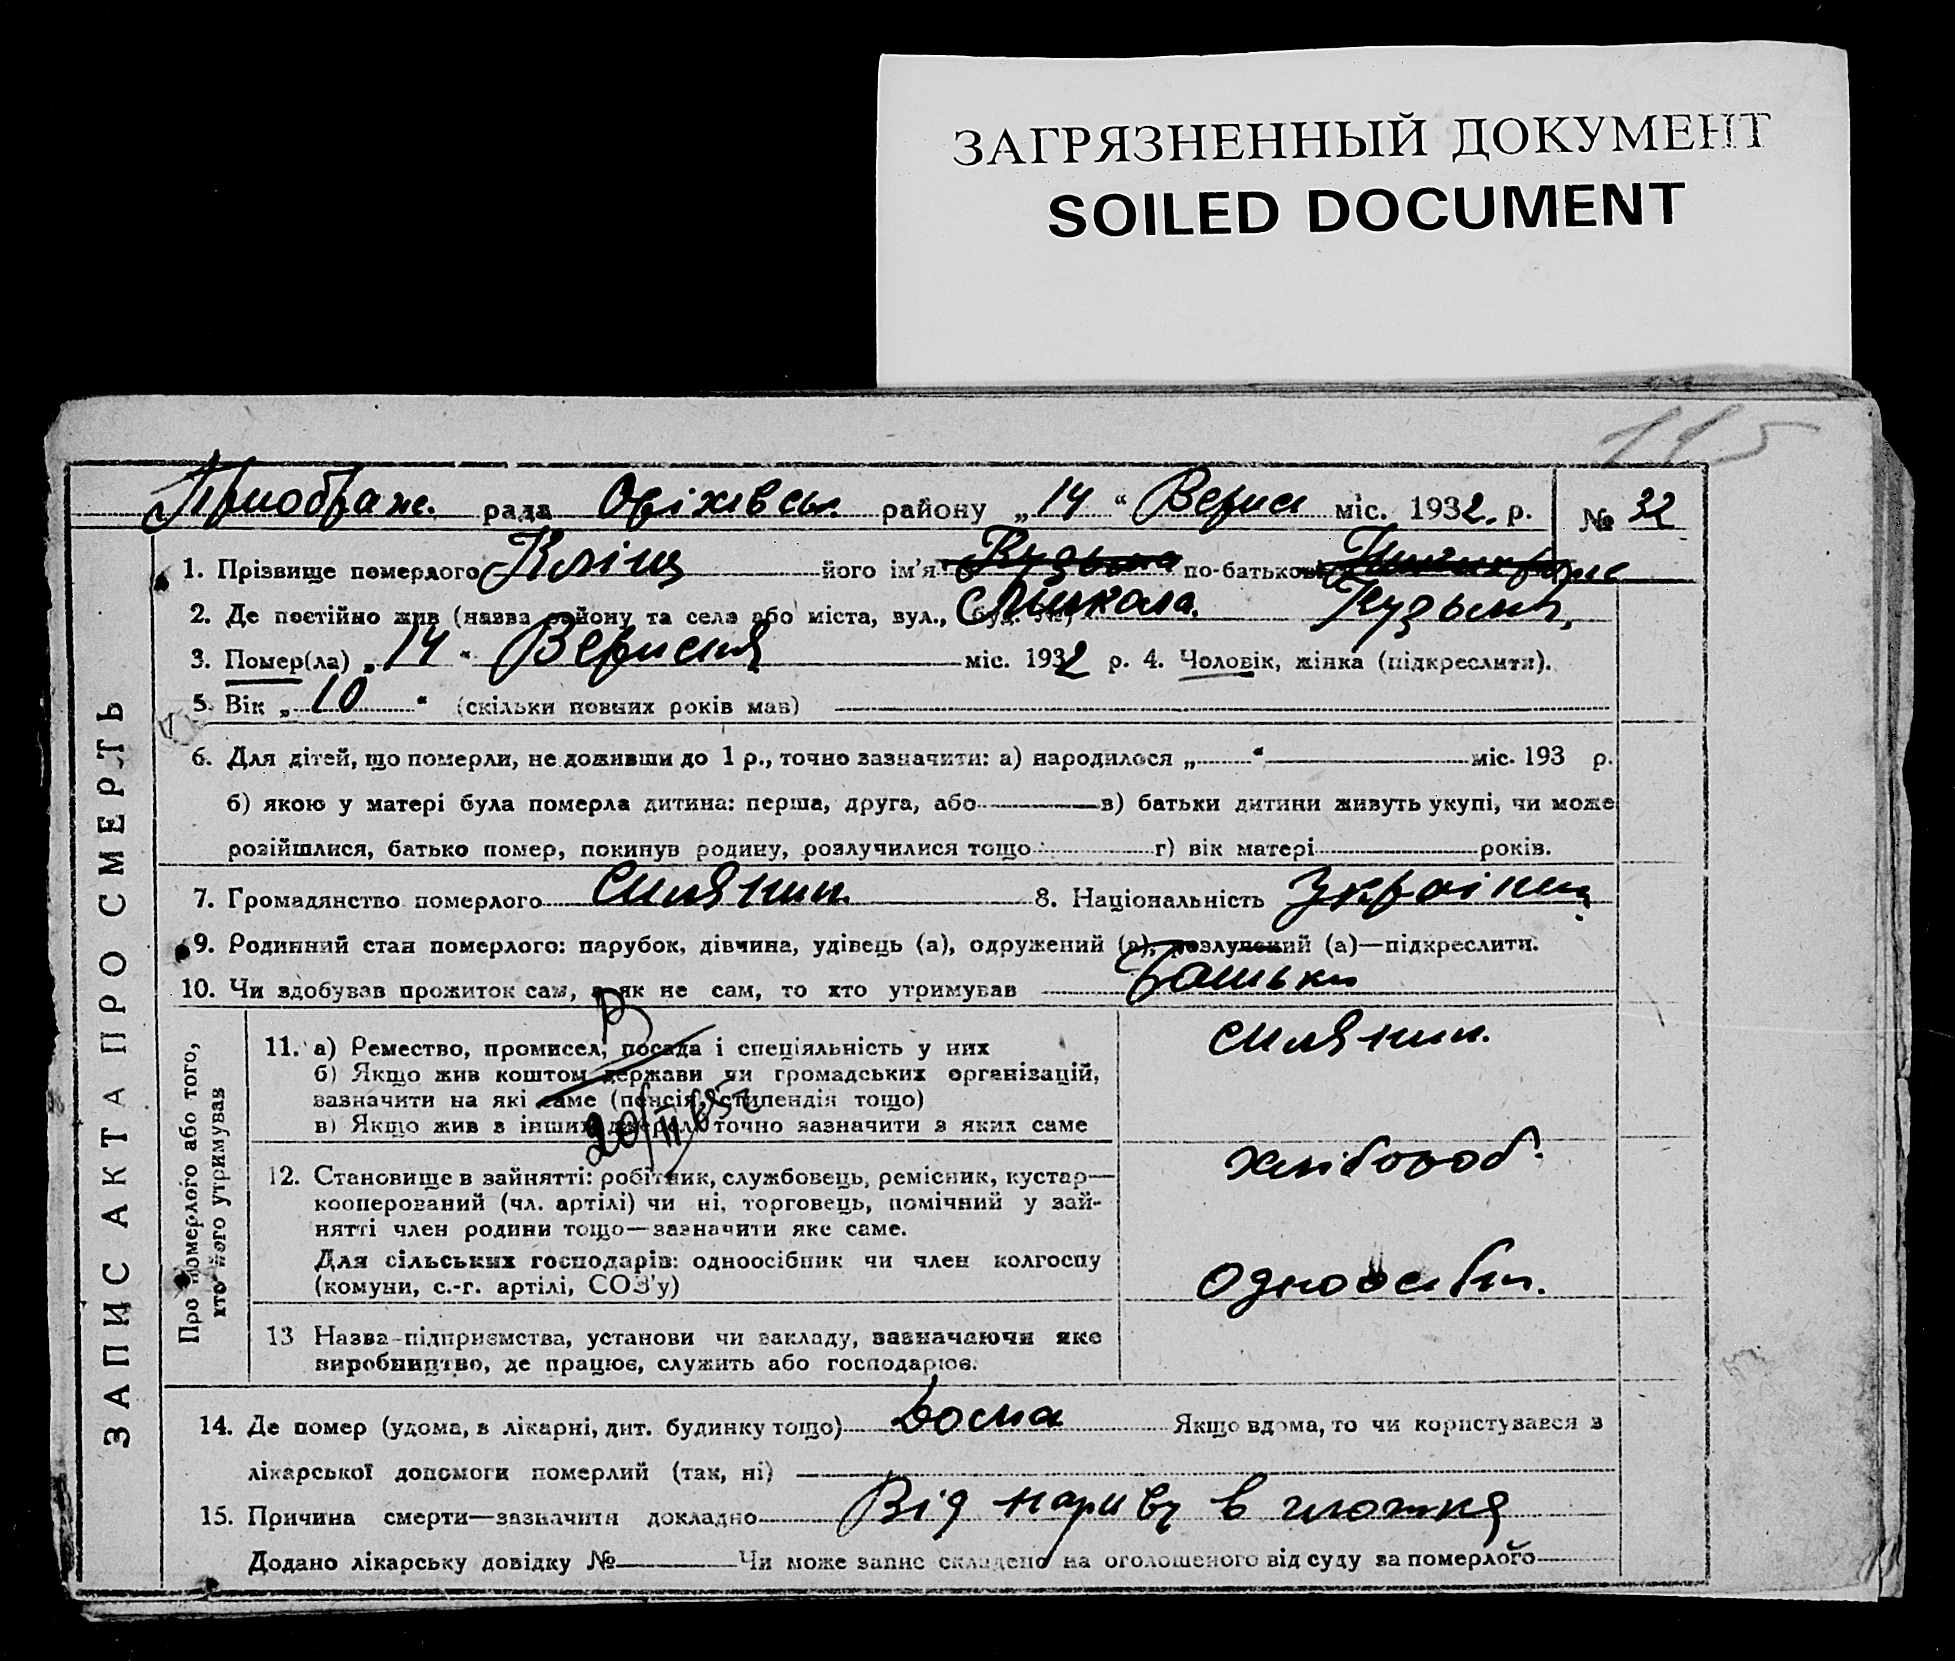 ЗАГРЯЗНЕННЫЙ ДОКУМЕНТ
SOILED DOCUMENT
115
Приображе. рада Оріхівськ. району „14“ Верисн міс. 1932. р. № 32
ЗАПИС АКТА ПРО СМЕРТЬ
1. Прізвище померлого Кліщ його ім'я Кузьма по-батькові
2. Де постійно жив (назва району та села або міста, вул., буд. №) Микола. Кузьмич,
3. Помер(ла) „14“ Верисния міс. 1932 р. 4. Чоловік, жінка (підкреслити).
5. Вік „10“ (скільки повних років мав)
6. Для дітей, що померли, не доживши до 1 р., точно зазначити: а) народилося „ “ міс. 193 р.
б) якою у матері була померла дитина: перша, друга, або в) батьки дитини живуть укупі, чи може
розійшлися, батько помер, покинув родину, розлучилися тощо г) вік матері років.
7. Громадянство померлого силянин. 8. Національність Українец
9. Родинний стан померлого: парубок, дівчина, удівець (а), одружений (а), розлучений (а)—підкреслити.
10. Чи здобував прожиток сам, а як не сам, то хто утримував Батьки
Про померлого або того,
хто його утримував
11. а) Ремество, промисел, посада і спеціяльність у них силянин.
б) Якщо жив коштом держави чи громадських організацій,
зазначити на які саме (пенсія, стипендія тощо)
в) Якщо жив з інших джерел точно зазначити з яких саме
20/II
12. Становище в зайнятті: робітник, службовець, ремісник, кустар— хлібороб.
кооперований (чл. артілі) чи ні, торговець, помічний у зай-
нятті член родини тощо—зазначити яке саме.
Для сільських господарів: одноосібник чи член колгоспу
(комуни, с.-г. артілі, СОЗ'у) Одноосібн.
13 Назва підприємства, установи чи закладу, зазначаючи яке
виробництво, де працює, служить або господарює.
14. Де помер (удома, в лікарні, дит. будинку тощо) Дома Якщо вдома, то чи користувався з
лікарської допомоги померлий (так, ні)
15. Причина смерти—зазначити докладно Від нариву в глоткя
Додано лікарську довідку № Чи може запис складено на оголошеного від суду за померлого